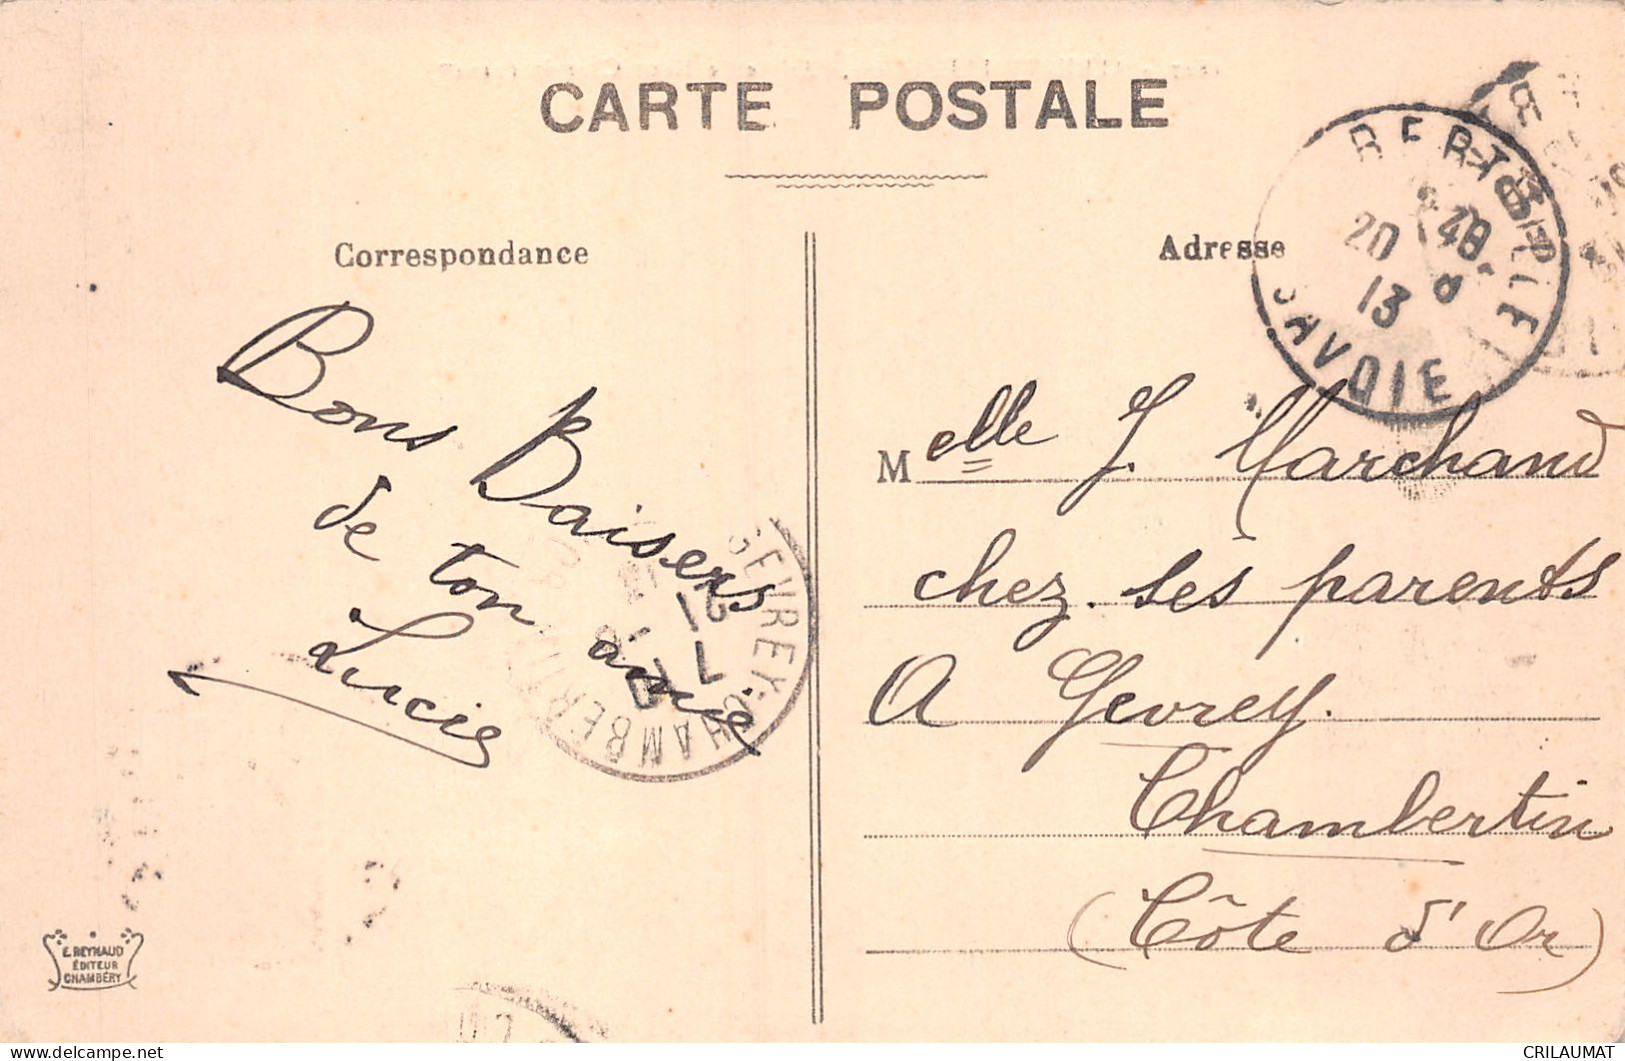 CARTE POSTALE
Correspondance
Bons Baisers
de ton amie
Lucie
GEVREY-CHAMBERTIN
21
7
E. REYNAUD
ÉDITEUR
CHAMBÉRY
Adresse
ALBERTVILLE
20
13
SAVOIE
Melle J. Marchand
chez ses parents
A Gevrey
Chambertin
(Côte d'Or)
CRILAUMAT